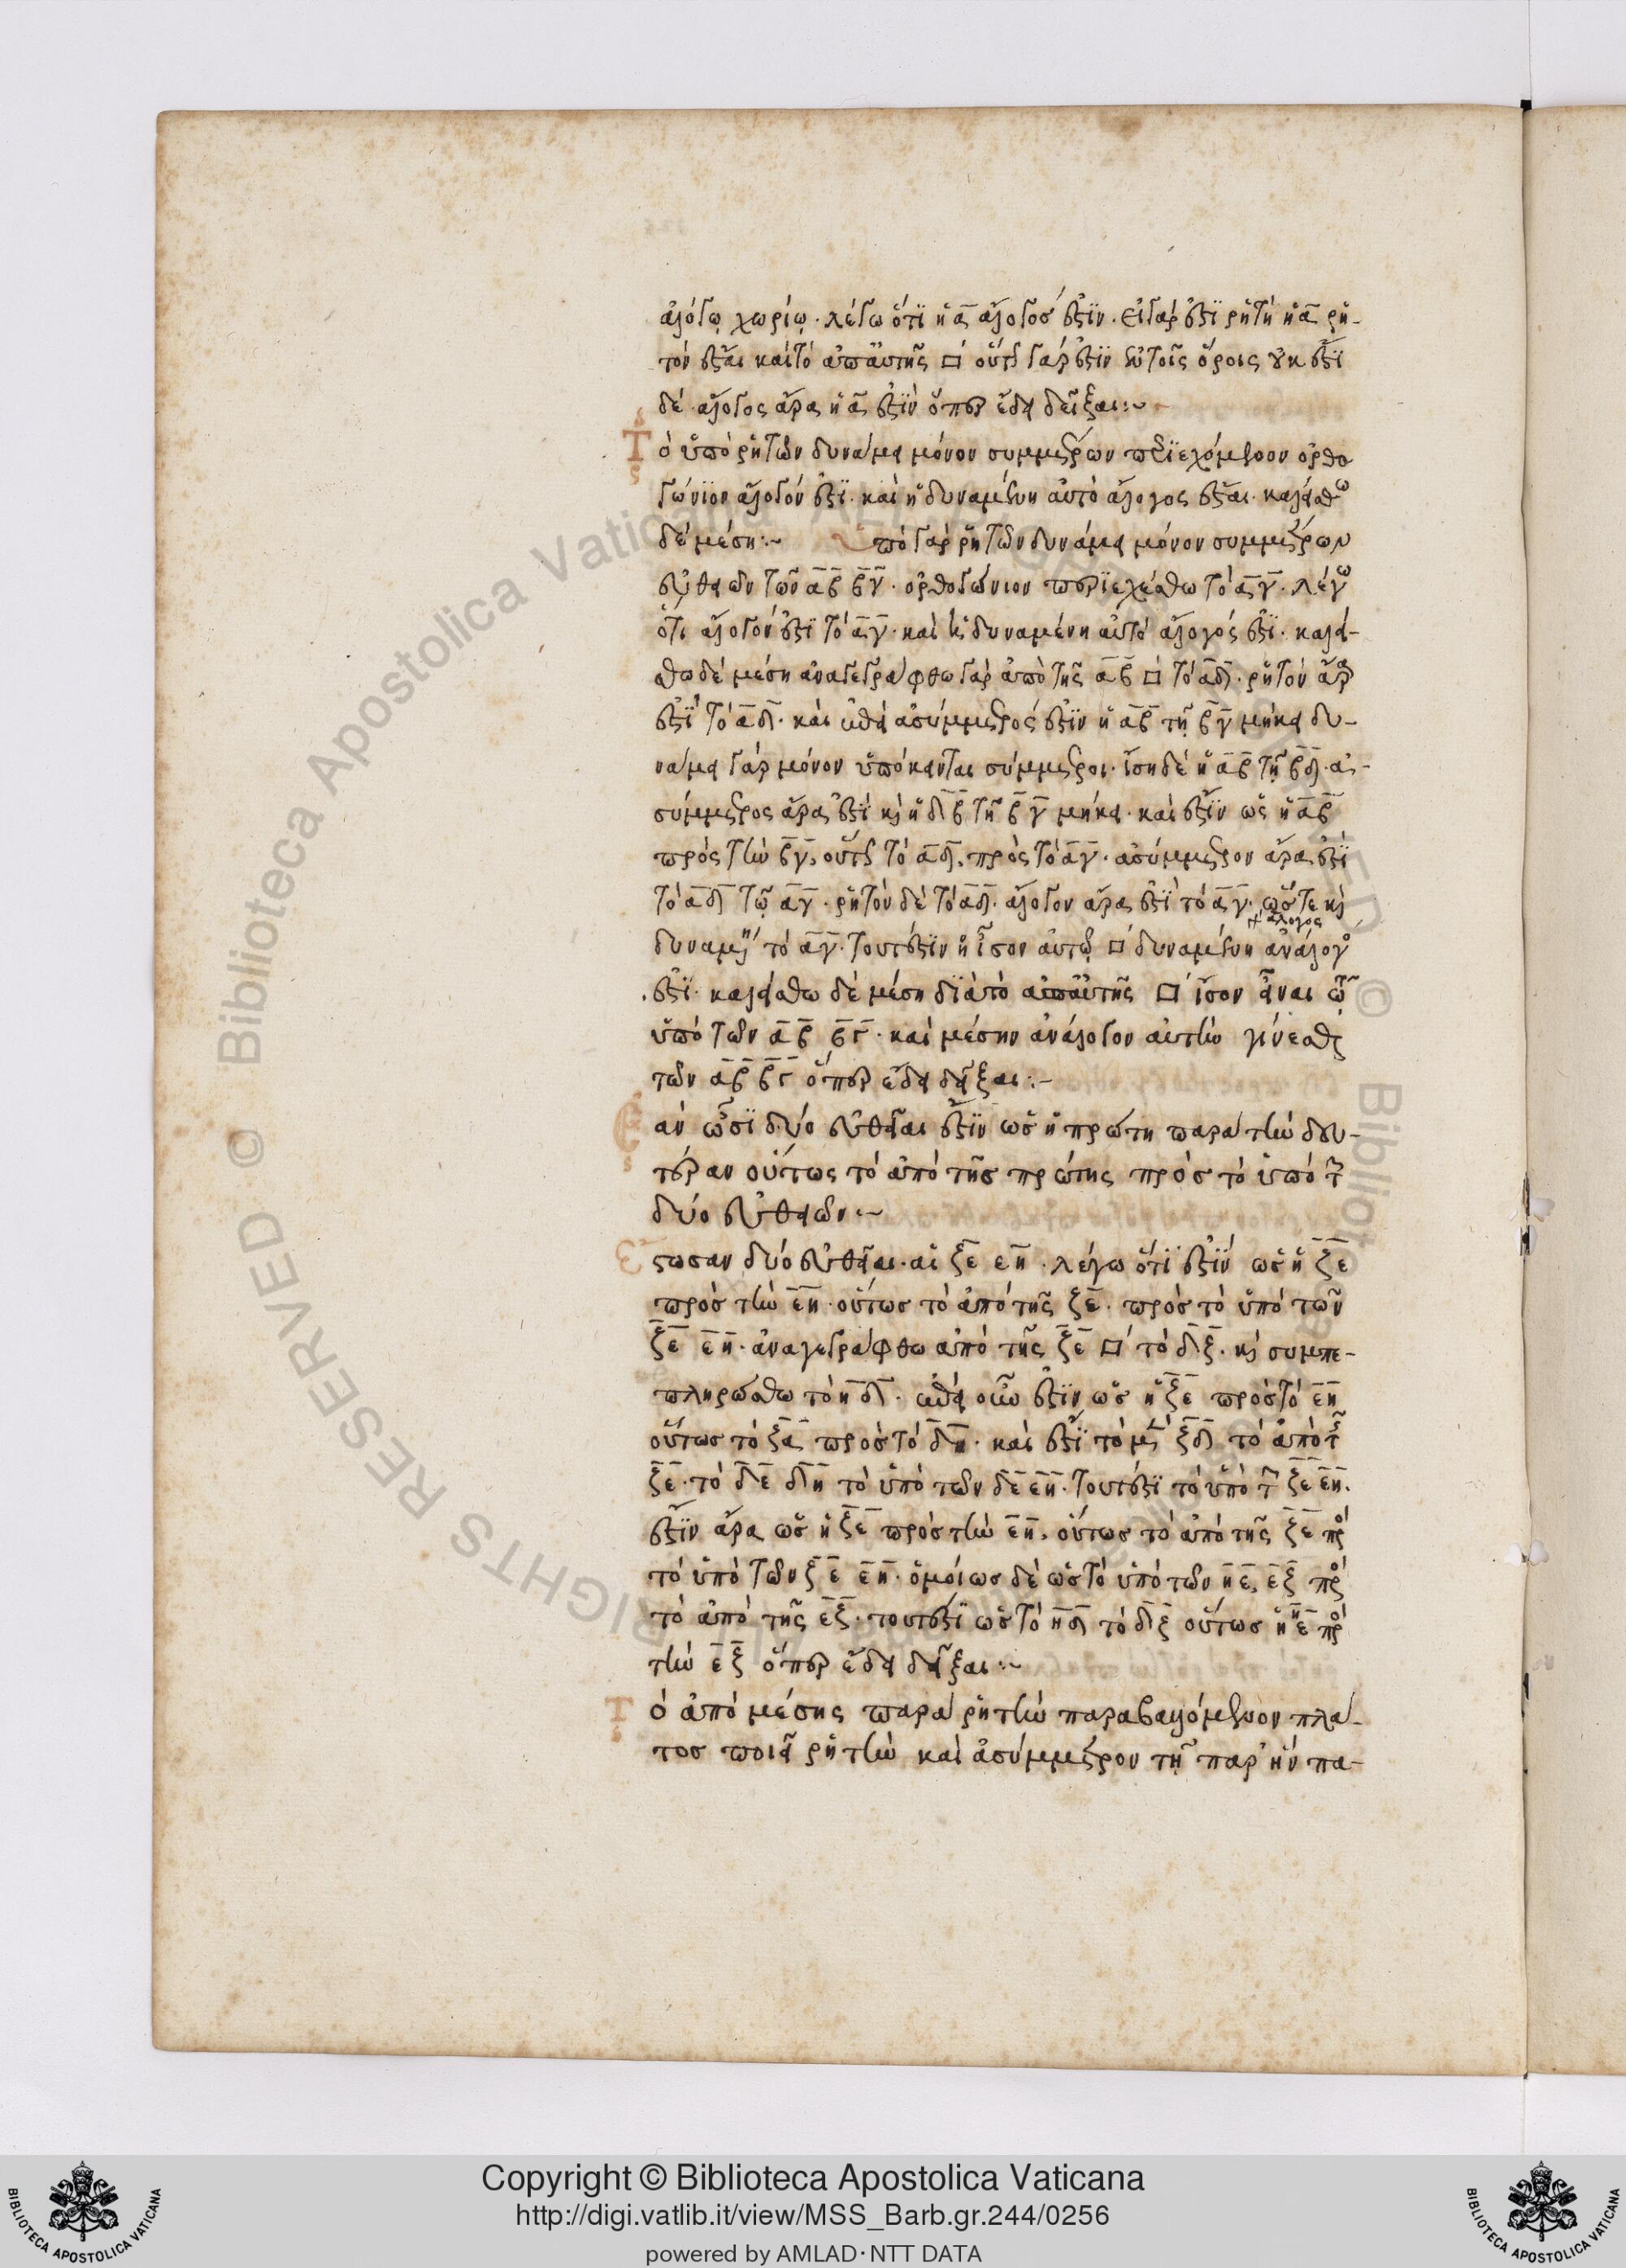 ἀλόγῳ χωρίῳ. λέγω ὅτι ἡ α ἄλογός ἐστιν. εἰ γάρ ἐστι ῥητὴ ἡ α ῥη-
τὸν ἔσται καὶ τὸ ἀπ' αὐτῆς □ οὕτως γάρ ἐστιν ἐν τοῖς ὅροις οὐκ ἔστι
δέ. ἄλογος ἄρα ἡ α ἐστὶν ὅπερ ἔδει δεῖξαι:~
Τὸ ὑπὸ ῥητῶν δυνάμει μόνον συμμέτρων περιεχόμενον ὀρθο
γώνιον ἄλογόν ἐστι. καὶ ἡ δυναμένη αὐτὸ ἄλογος ἔσται. καλείσθω
δὲ μέση:~ Ὑπὸ γὰρ ῥητῶν δυνάμει μόνον συμμέτρων
εὐθειῶν τῶν αβ βγ. ὀρθογώνιον περιεχέσθω τὸ αγ. λέγω
ὅτι ἄλογόν ἐστι τὸ αγ. καὶ ἡ δυναμένη αὐτὸ ἄλογός ἐστι. καλεί-
σθω δὲ μέση ἀναγεγράφθω γὰρ ἀπὸ τῆς αβ □ τὸ αδ. ῥητὸν ἄρα
ἐστὶ τὸ αδ. καὶ ἐπεὶ ἀσύμμετρός ἐστιν ἡ αβ τῇ βγ μήκει δυ-
νάμει γὰρ μόνον ὑπόκεινται σύμμετροι. ἴση δὲ ἡ αβ τῇ βδ. ἀ-
σύμμετρος ἄρα ἐστὶ κ̀ ἡ δβ τῇ βγ μήκει. καὶ ἔστιν ὡς ἡ αβ
πρὸς τὴν βγ, οὕτως τὸ αδ, πρὸς τὸ αγ. ἀσύμμετρον ἄρα ἐστὶ
τὸ αδ τῷ αγ. ῥητὸν δὲ τὸ αδ. ἄλογον ἄρα ἐστὶ τὸ αγ. ὥστε κ̀
ἄλογος
δυναμένη τὸ αγ. τουτέστιν ἡ ἴσον αὐτῷ □ δυναμένη ἀνάλογος
ἐστί. καλείσθω δὲ μέση διὰ τὸ ἀπ' αὐτῆς □ ἴσον εἶναι τῷ
ὑπὸ τῶν αβ βγ. καὶ μέσην ἀνάλογον αὐτὴν γίνεσθαι
τῶν αβ βγ ὅπερ ἔδει δεῖξαι:~
Ἐὰν ὦσι δύο εὐθεῖαι ἔστιν ὡς ἡ πρώτη παρὰ τὴν δευ-
τέραν οὕτως τὸ ἀπὸ τῆς πρώτης πρὸς τὸ ὑπὸ τῶν
δύο εὐθειῶν:~
Ἔστωσαν δύο εὐθεῖαι. αἱ ξε εη. λέγω ὅτι ἐστὶν ὡς ἡ ξε
πρὸς τὴν εη. οὕτως τὸ ἀπὸ τῆς ξε. πρὸς τὸ ὑπὸ τῶν
ξε εη. ἀναγεγράφθω ἀπὸ τῆς ξε □ τὸ δξ. κ̀ συμπε-
πληρώσθω τὸ ηδ. ἐπεὶ οὖν ἐστιν ὡς ἡ ξε πρὸς τὸ εη
οὕτως τὸ ξα πρὸς τὸ δη. καὶ ἔστι τὸ μὲν ξδ τὸ ἀπὸ τῆς
ξε. τὸ δὲ δη τὸ ὑπὸ τῶν δε εη. τουτέστι τὸ ὑπὸ τῶν ξε εη.
ἔστιν ἄρα ὡς ἡ ξε πρὸς τὴν εη, οὕτως τὸ ἀπὸ τῆς ξε πρὸς
τὸ ὑπὸ τῶν ξε εη. ὁμοίως δὲ ὡς τὸ ὑπὸ τῶν ηε, εξ πρὸς
τὸ ἀπὸ τῆς εξ. τουτέστι ὡς τὸ ηδ τὸ δξ οὕτως ἡ ηε πρὸς
τὴν εξ ὅπερ ἔδει δεῖξαι:~
Τὸ ἀπὸ μέσης παρὰ ῥητὴν παραβαλλόμενον πλά-
τος ποιεῖ ῥητὴν καὶ ἀσύμμετρον τῇ παρ' ἣν πα-
Copyright © Biblioteca Apostolica Vaticana
http://digi.vatlib.it/view/MSS_Barb.gr.244/0256
powered by AMLAD·NTT DATA